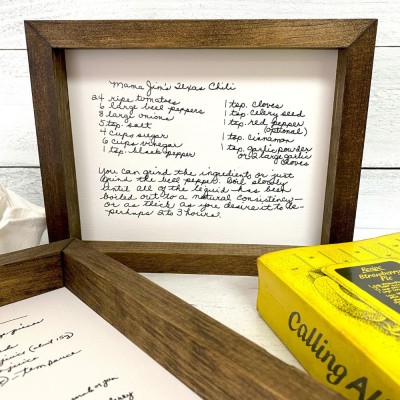 Mama Jin's Texas Chili
24 ripe tomatoes
6 large bell peppers
8 large onions
5 tsp. salt
4 cups sugar
6 cups vinegar
1 tsp. black pepper
1 tsp. cloves
1 tsp. celery seed
1 tsp. red pepper
(optional)
1 tsp. cinnamon
1 tsp. garlic powder
or 2 large garlic
cloves
You can grind the ingredients or just
grind the bell pepper. Boil slowly
until all of the liquid has been
boiled out to a natural consistency—
or as thick as you desire it to be—
perhaps 2 to 3 hours.
juice
Strawberry
Pie
Calling Al